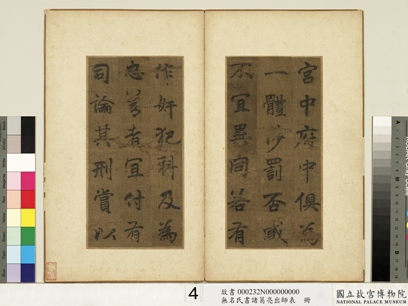 宮中府中俱為
一體陟罰否臧
不宜異同若有
作奸犯科及為
忠善者宜付有
司論其刑賞以
4
故書000232N000000000
無名氏書諸葛亮出師表 冊
國立故宮博物院
NATIONAL PALACE MUSEUM